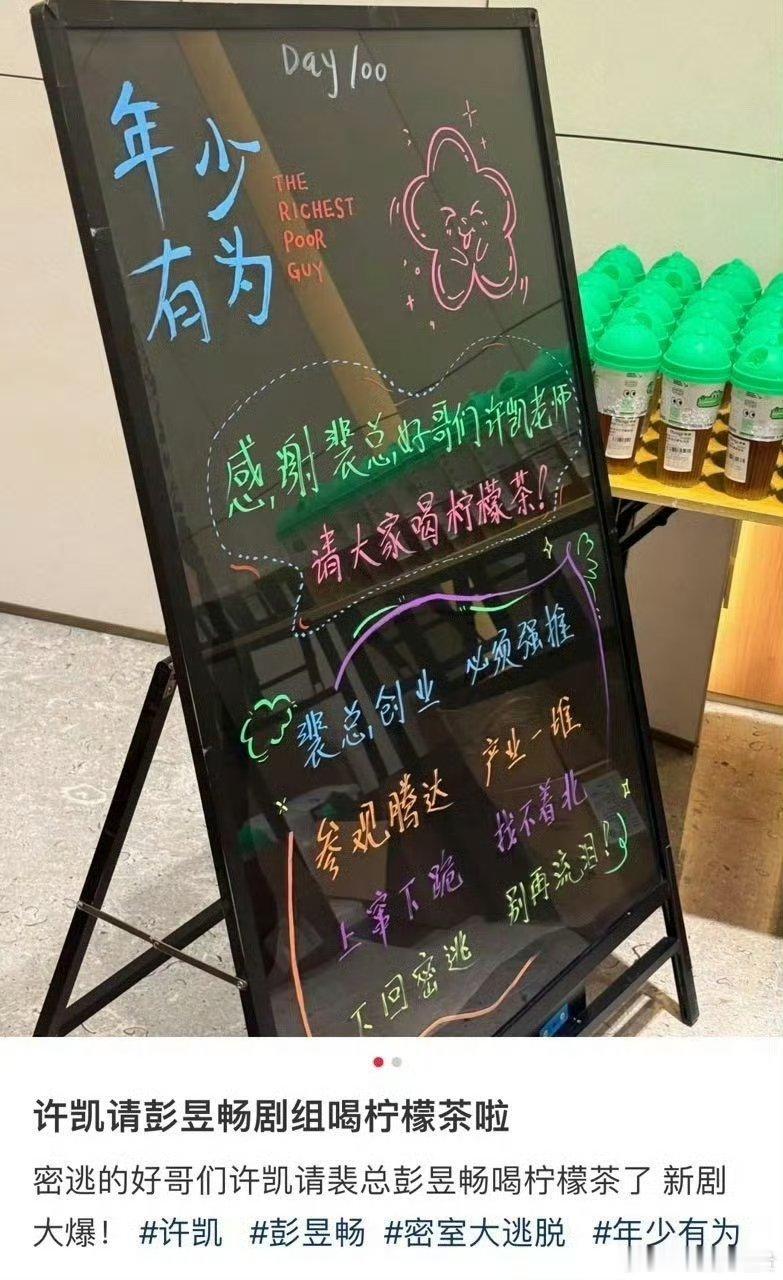 Day 100
年少
有为
THE
RICHEST
POOR
GUY
感谢裴总好哥们许凯老师
请大家喝柠檬茶!
裴总创业 必须强推
参观腾达 产业一堆
上窜下跪 找不着北
下回密逃 别再流泪!
许凯请彭昱畅剧组喝柠檬茶啦
密逃的好哥们许凯请裴总彭昱畅喝柠檬茶了 新剧
大爆! #许凯 #彭昱畅 #密室大逃脱 #年少有为